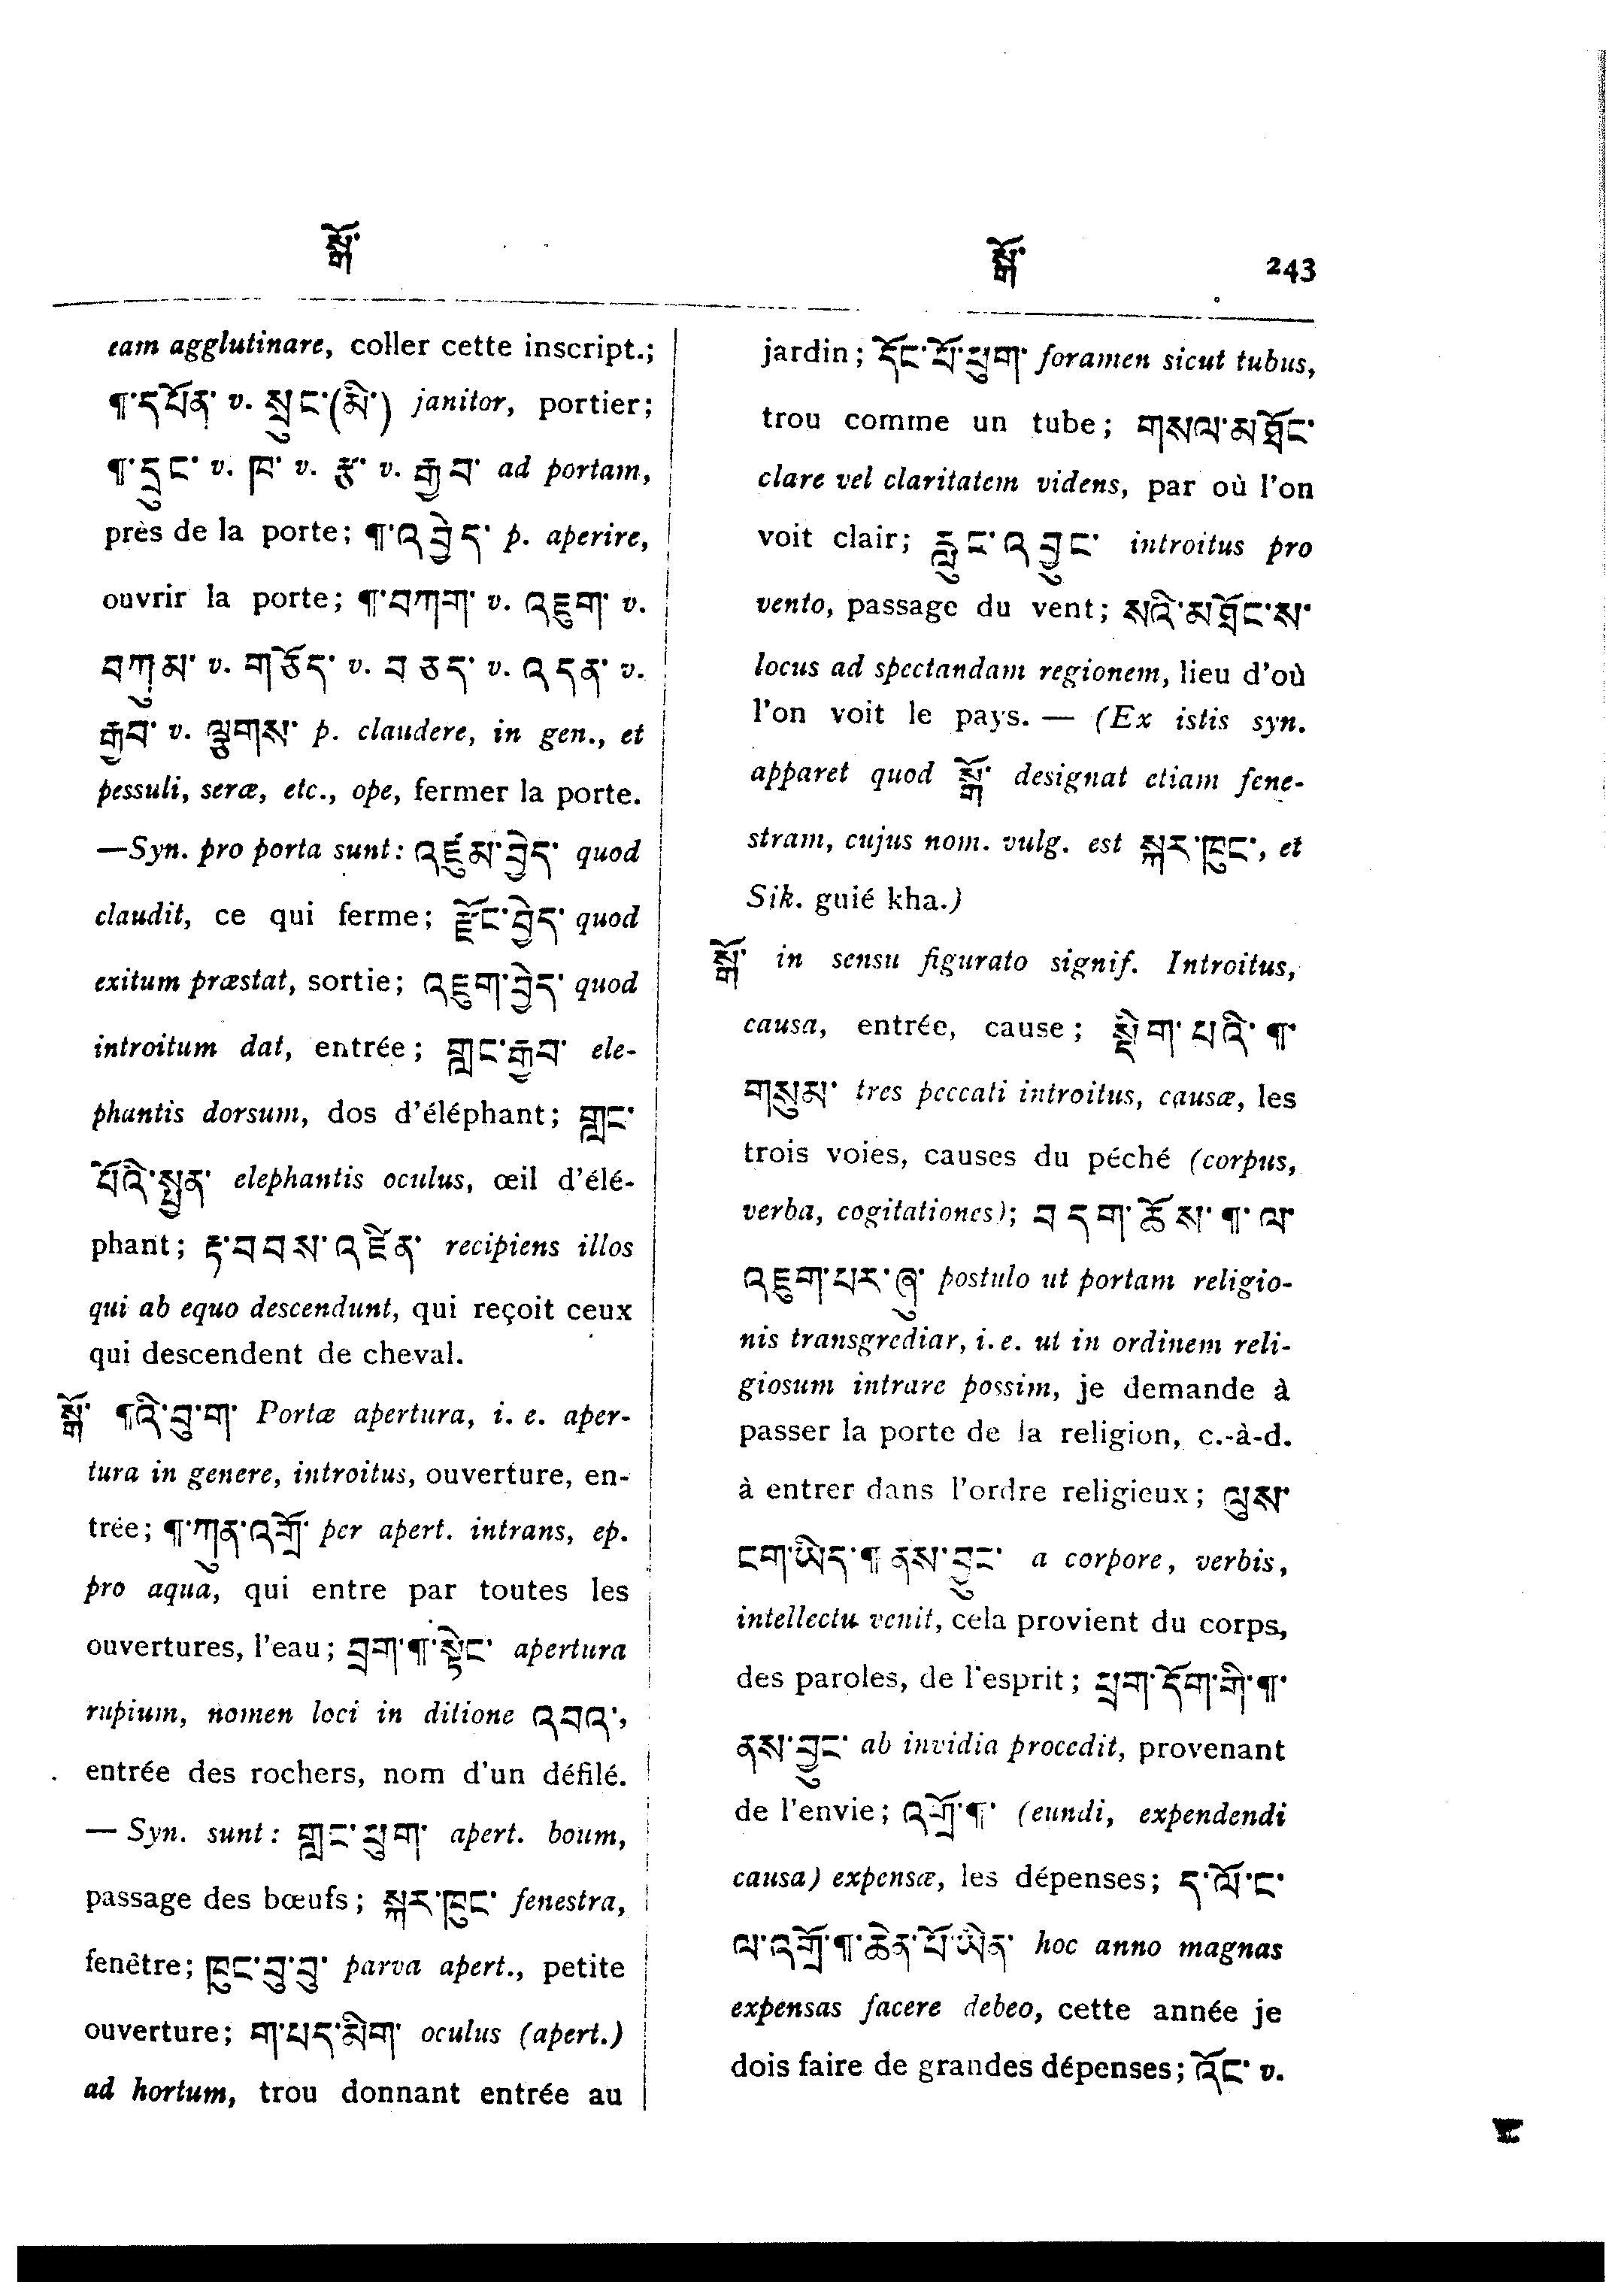 སྒོ་
སྒོ་ 243
eam agglutinare, coller cette inscript.;
¶་དཔོན་ v. སྲུང་(མི་) janitor, portier;
¶་དྲུང་ v. ཁ་ v. རྩ་ v. རྒྱབ་ ad portam,
près de la porte; ¶་འབྱེད་ p. aperire,
ouvrir la porte; ¶་བཀག་ v. འཇུག་ v.
བཀུམ་ v. གཅོད་ v. བཅད་ v. འདན་ v.
རྒྱབ་ v. ལྕགས་ p. claudere, in gen., et
pessuli, seræ, etc., ope, fermer la porte.
—Syn. pro porta sunt: འཛུམ་བྱེད་ quod
claudit, ce qui ferme; རྫོང་བྱེད་ quod
exitum præstat, sortie; འཇུག་བྱེད་ quod
introitum dat, entrée; གླང་རྒྱབ་ ele-
phantis dorsum, dos d'éléphant; གླང་
པོའི་སྤྱན་ elephantis oculus, œil d'élé-
phant; རྟ་བབས་འཛིན་ recipiens illos
qui ab equo descendunt, qui reçoit ceux
qui descendent de cheval.
སྒོ་ ¶འི་བུ་ག་ Portæ apertura, i. e. aper-
tura in genere, introitus, ouverture, en-
trée; ¶་ཀུན་འགྲོ་ per apert. intrans, ep.
pro aqua, qui entre par toutes les
ouvertures, l'eau; བྲག་¶་སྟེང་ apertura
rupium, nomen loci in ditione འབའ་,
entrée des rochers, nom d'un défilé.
— Syn. sunt: གླང་ཕུག་ apert. boum,
passage des bœufs; སྐར་ཁུང་ fenestra,
fenêtre; ཁུང་བུ་བུ་ parva apert., petite
ouverture; ག་པད་མིག་ oculus (apert.)
ad hortum, trou donnant entrée au
jardin; དོང་པོ་ཕུག་ foramen sicut tubus,
trou comme un tube; གསལ་མཐོང་
clare vel claritatem videns, par où l'on
voit clair; རླུང་འབྱུང་ introitus pro
vento, passage du vent; སའི་མཐོང་ས་
locus ad spectandam regionem, lieu d'où
l'on voit le pays. — (Ex istis syn.
apparet quod སྒོ་ designat etiam fene-
stram, cujus nom. vulg. est སྐར་ཁུང་, et
Sik. guié kha.)
སྒོ་ in sensu figurato signif. Introitus,
causa, entrée, cause; སྡིག་པའི་¶་
གསུམ་ tres peccati introitus, causæ, les
trois voies, causes du péché (corpus,
verba, cogitationes); བདག་ཆོས་¶་ལ་
འཇུག་པར་ཞུ་ postulo ut portam religio-
nis transgrediar, i. e. ut in ordinem reli-
giosum intrare possim, je demande à
passer la porte de la religion, c.-à-d.
à entrer dans l'ordre religieux; ལུས་
ངག་ཡིད་¶ནས་བྱུང་ a corpore, verbis,
intellectu venit, cela provient du corps,
des paroles, de l'esprit; ཕྲག་དོག་གི་¶་
ནས་བྱུང་ ab invidia procedit, provenant
de l'envie; འགྲོ་¶་ (eundi, expendendi
causa) expensæ, les dépenses; ད་ལོ་ང་
ལ་འགྲོ་¶་ཆེན་པོ་ཡིན་ hoc anno magnas
expensas facere debeo, cette année je
dois faire de grandes dépenses; འོང་ v.